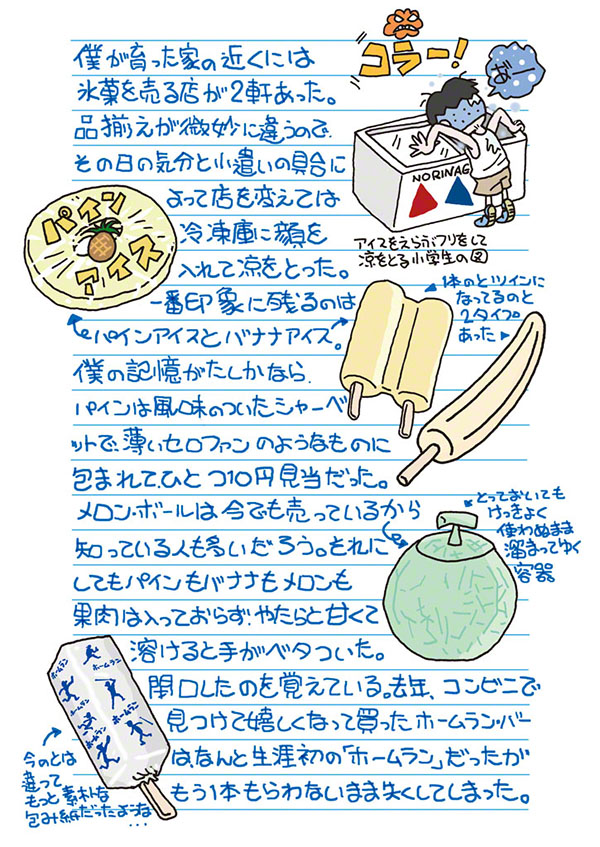 コラー!
おー
僕が育った家の近くには
氷菓を売る店が2軒あった。
品揃えが微妙に違うので、
その日の気分と小遣いの具合に
よって店を変えては
冷凍庫に顔を
入れて涼をとった。
一番印象に残るのは
パインアイスとバナナアイス。
僕の記憶がたしかなら、
パインは風味のついたシャーベ
ットで、薄いセロファンのようなものに
包まれて、ひとつ10円見当だった。
メロン・ボールは今でも売っているから
知っている人も多いだろう。それに
してもパインもバナナもメロンも
果肉は入っておらず、やたらと甘くて
溶けると手がベタついた。
閉口したのを覚えている。去年、コンビニで
見つけて嬉しくなって買ったホームラン・バー
は、なんと生涯初の「ホームラン」だったが
もう1本もらわないまま失くしてしまった。
NORINAG
アイスをえらぶフリをして
涼をとる小学生の図
パイン
アイス
1本のとツインに
なってるのと
2タイプ
あった
とっておいても
けっきょく
使わぬまま
溜まってゆく
容器
ホームラン
ホームラン
ホームラン
ホームラン
ホームラン
今のとは
違って
もっと素朴な
包み紙だったような…